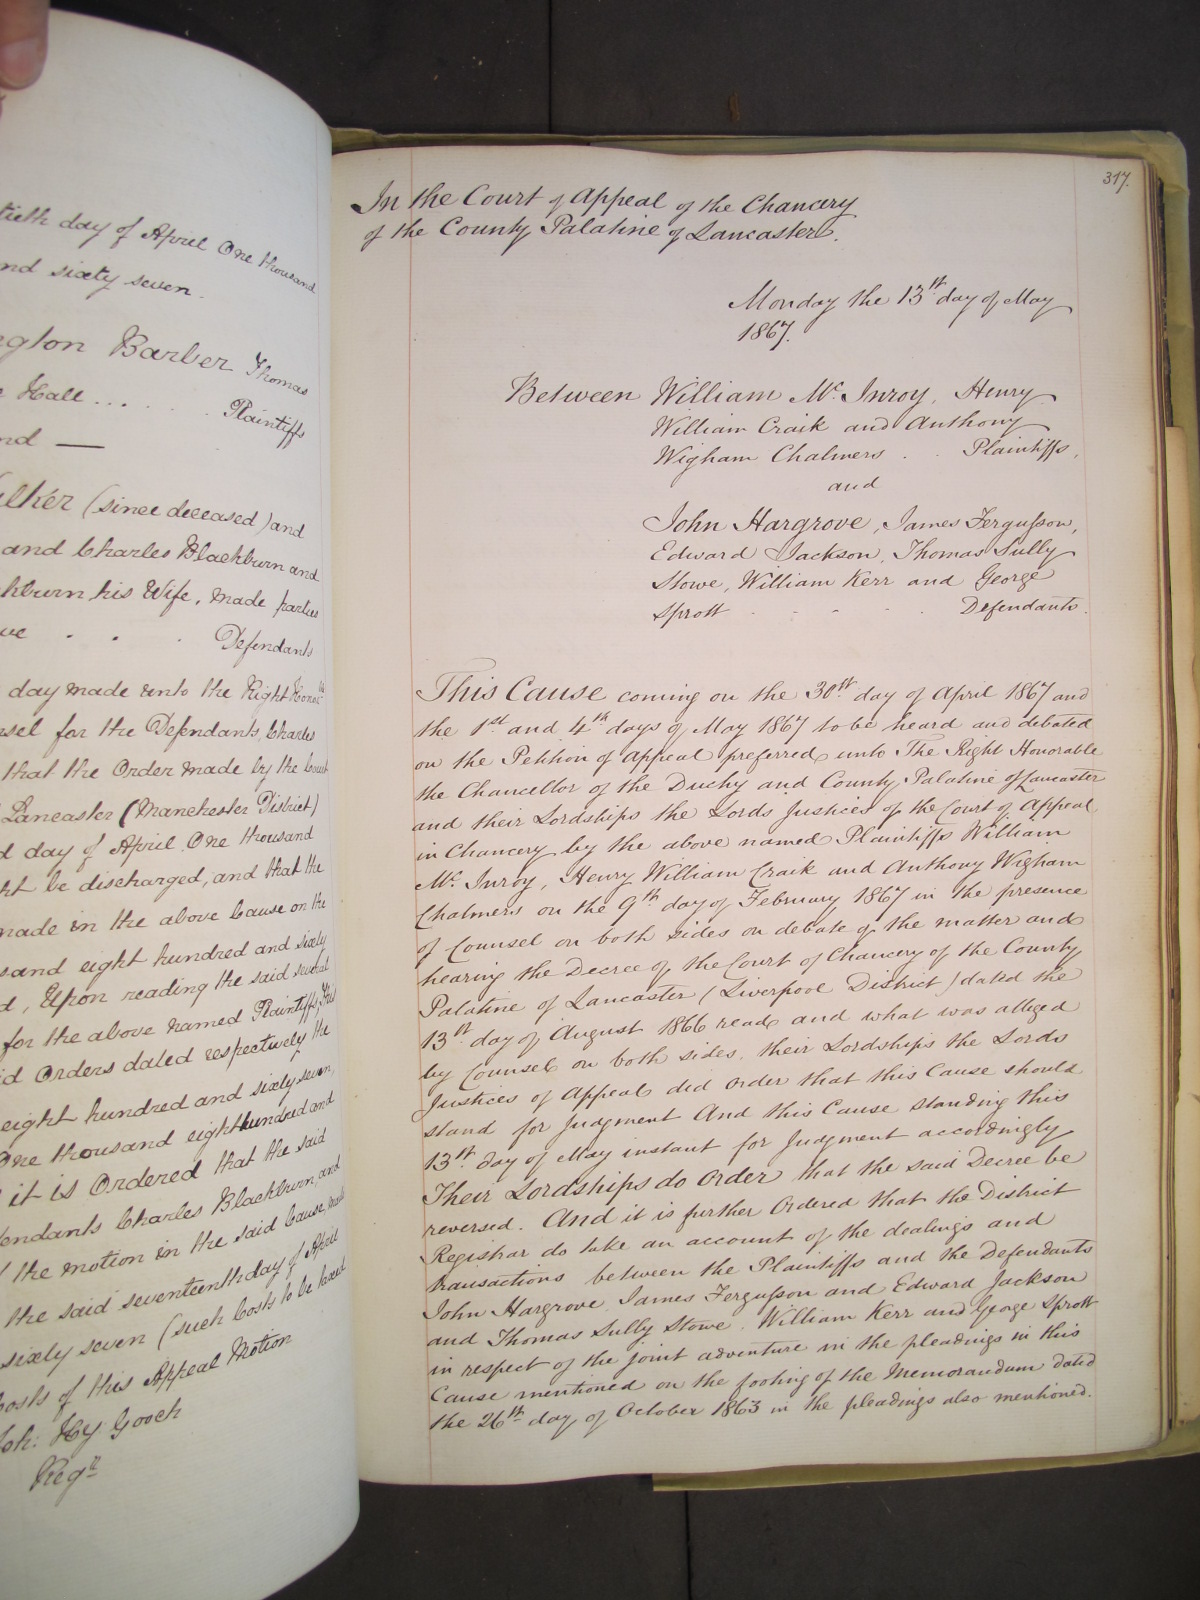 tieth day of April One thousand
nd sixty seven.
ngton Barber Thomas
Hall . . . . Plaintiffs
nd —
lker (since deceased) and
and Charles Blackburn and
kburn his Wife, made parties
ve . . . Defendants
day made unto the Right Honble
nsel for the Defendants, Charles
that the Order made by the Court
Lancaster (Manchester District)
d day of April One thousand
ht be discharged, and that the
made in the above Cause on the
sand eight hundred and sixty
d, Upon reading the said several
for the above named Plaintiffs, this
id Orders dated respectively the
eight hundred and sixty seven,
One thousand eight hundred and
it is Ordered that the said
fendants Charles Blackburn and
the motion in the said Cause made
the said seventeenth day of April
sixty seven (such Costs to be taxed
Costs of this Appeal Motion
Joh: Hy: Gooch
Regr
317.
In the Court of Appeal of the Chancery
of the County Palatine of Lancaster.
Monday the 13th day of May
1867.
Between William Mc. Inroy, Henry
William Craik and Anthony
Wigham Chalmers . . Plaintiffs,
and
John Hargrove, James Fergusson,
Edward Jackson, Thomas Sully
Stowe, William Kerr and George
Sprott . . . . Defendants.
This Cause coming on the 30th day of April 1867 and
the 1st and 4th days of May 1867 to be heard and debated
on the Petition of Appeal preferred unto The Right Honorable
the Chancellor of the Duchy and County Palatine of Lancaster
and their Lordships the Lords Justices of the Court of Appeal
in Chancery by the above named Plaintiffs William
Mc. Inroy, Henry William Craik and Anthony Wigham
Chalmers on the 9th day of February 1867 in the presence
of Counsel on both sides on debate of the matter and
hearing the Decree of the Court of Chancery of the County
Palatine of Lancaster (Liverpool District) dated the
13th day of August 1866 read and what was alleged
by Counsel on both sides, their Lordships the Lords
Justices of Appeal did order that this Cause should
stand for Judgment And this Cause standing this
13th day of May instant for Judgment accordingly
Their Lordships do Order that the said Decree be
reversed. And it is further Ordered that the District
Registrar do take an account of the dealings and
transactions between the Plaintiffs and the Defendants
John Hargrove, James Fergusson and Edward Jackson
and Thomas Sully Stowe, William Kerr and George Sprott
in respect of the joint adventure in the pleadings in this
Cause mentioned on the footing of the Memorandum dated
the 26th day of October 1863 in the pleadings also mentioned.